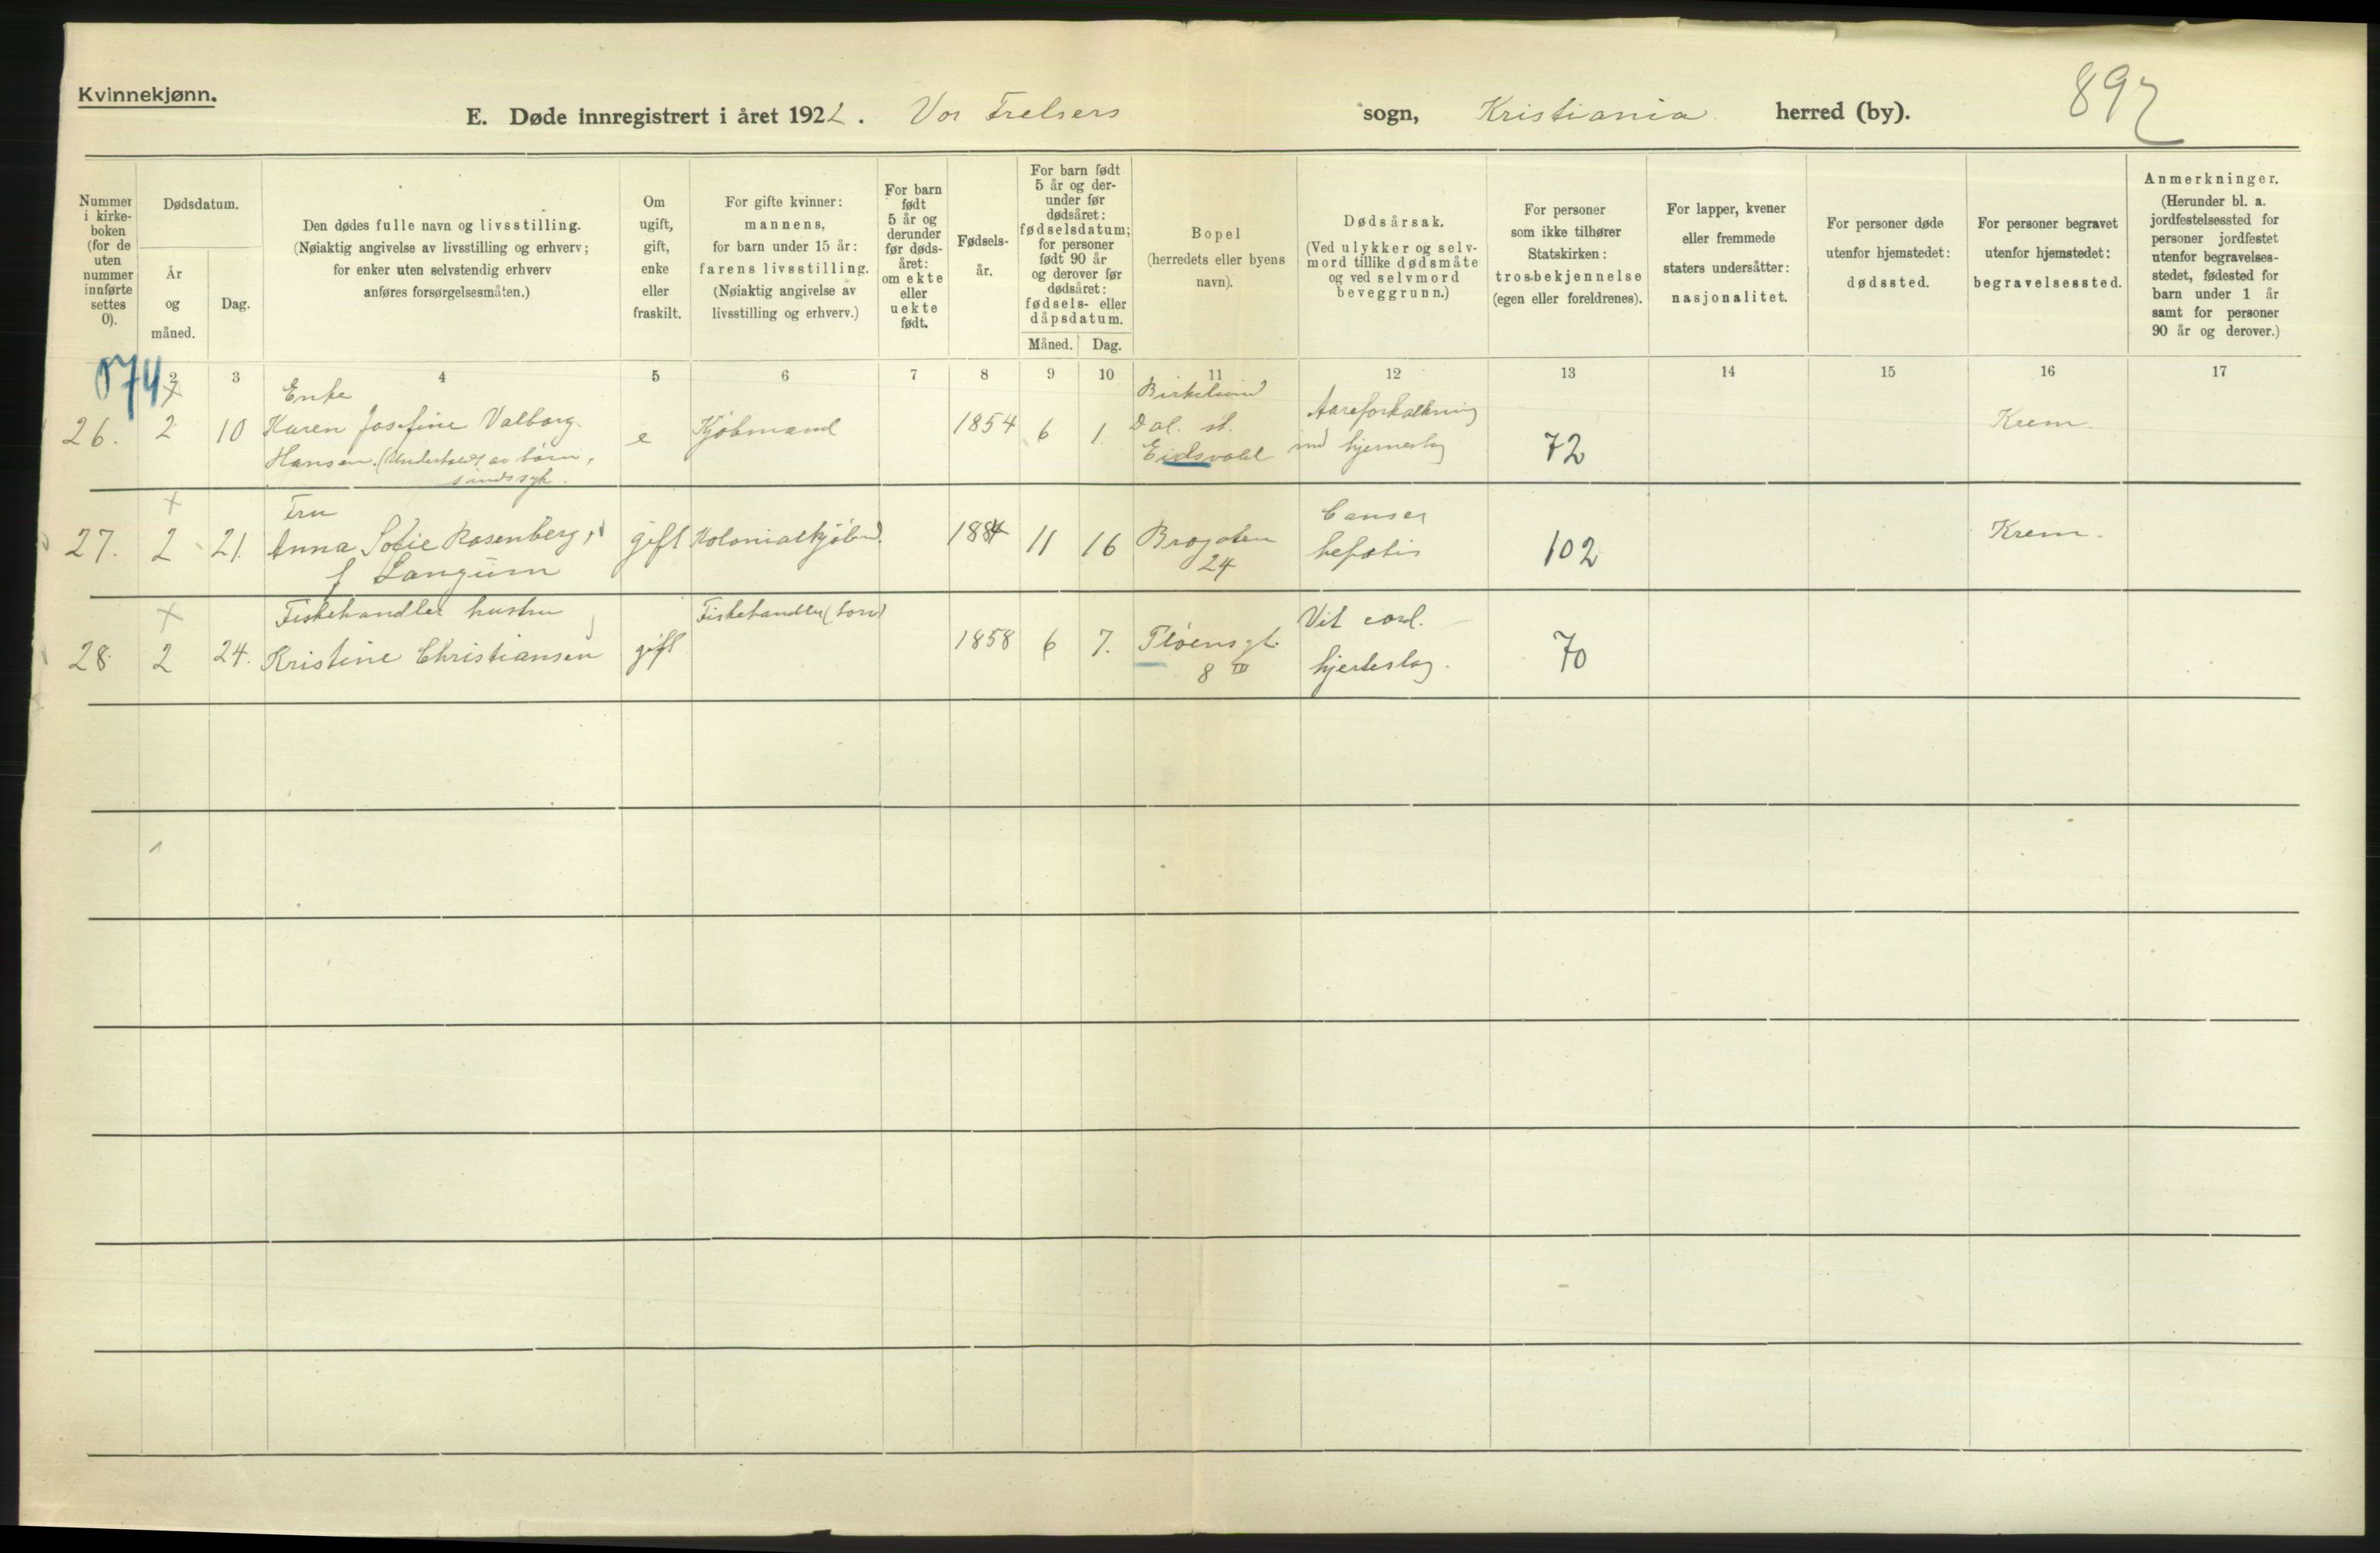 Kvinnekjønn.
E. Døde innregistrert i året 1922. Vor Frelsers sogn, Kristiania herred (by).
897
Nummer i kirkeboken (for de uten nummer innførte settes 0).
Dødsdatum.
År og måned.
Dag.
Den dødes fulle navn og livsstilling.
(Nøiaktig angivelse av livsstilling og erhverv;
for enker uten selvstendig erhverv
anføres forsørgelsesmåten.)
Om
ugift,
gift,
enke
eller
fraskilt.
For gifte kvinner:
mannens,
for barn under 15 år:
farens livsstilling.
(Nøiaktig angivelse av
livsstilling og erhverv.)
For barn
født
5 år og
derunder
før døds-
året:
om ekte
eller
uekte
født.
Fødsels-
år.
For barn født
5 år og der-
under før
dødsåret:
fødselsdatum;
for personer
født 90 år
og derover før
dødsåret:
fødsels- eller
dåpsdatum.
Måned.
Dag.
Bopel
(herredets eller byens
navn).
Dødsårsak.
(Ved ulykker og selv-
mord tillike dødsmåte
og ved selvmord
beveggrunn.)
For personer
som ikke tilhører
Statskirken:
trosbekjennelse
(egen eller foreldrenes).
For lapper, kvener
eller fremmede
staters undersåtter:
nasjonalitet.
For personer døde
utenfor hjemstedet:
dødssted.
For personer begravet
utenfor hjemstedet:
begravelsessted.
Anmerkninger.
(Herunder bl. a.
jordfestelsessted for
personer jordfestet
utenfor begravelses-
stedet, fødested for
barn under 1 år
samt for personer
90 år og derover.)
074
2 3 4 5 6 7 8 9 10 11 12 13 14 15 16 17
26. 2 10
Enke
Karen Josefine Valborg
Hansen. (Underhold av børn,
sindssyk.
e
Kjøbmand
1854 6 1.
Birkelund
Dal. st.
Eidsvold
Aareforkalkning
med hjerneslag
72
Krem.
27. 2 21.
Fru
Anna Sofie Rosenberg,
f Langum
gift
Kolonialkjøbm.
1884 11 16
Brogaten
24
Cancer
hepatis
102
Krem.
28. 2 24.
Fiskehandler hustru
Kristine Christiansen
gift
Fiskehandler (torv)
1858 6 7.
Pløensgt.
8 IV
Vit cord.
hjerteslag.
70